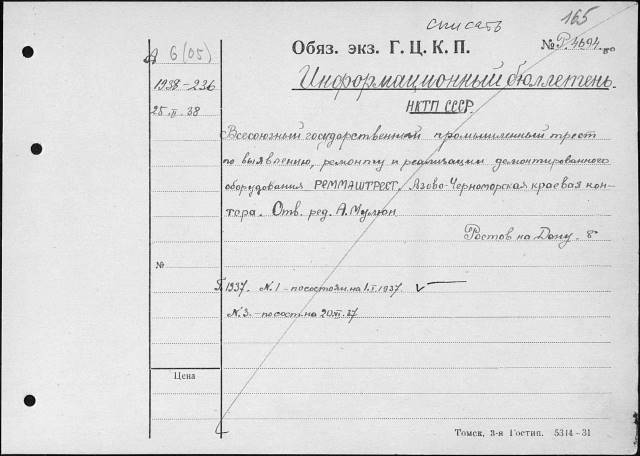 списать
165
А 6(05)
Обяз. экз. Г. Ц. К. П.
№ Р.4694.
1938-236
Информационный бюллетень
25.II.38
НКТП СССР
Всесоюзный государственный промышленный трест
по выявлению, ремонту и реализации демонтированного
оборудования РЕММАШТРЕСТ. Азово-Черноморская краевая кон-
тора. Отв. ред. А. Мулюн
Ростов на Дону. 8°
№
1937. №1 - по состоян. на 1.I.1937.
№3. - по сост. на 20.III.37
Цена
Томск, 3-я Гостип. 5314-31